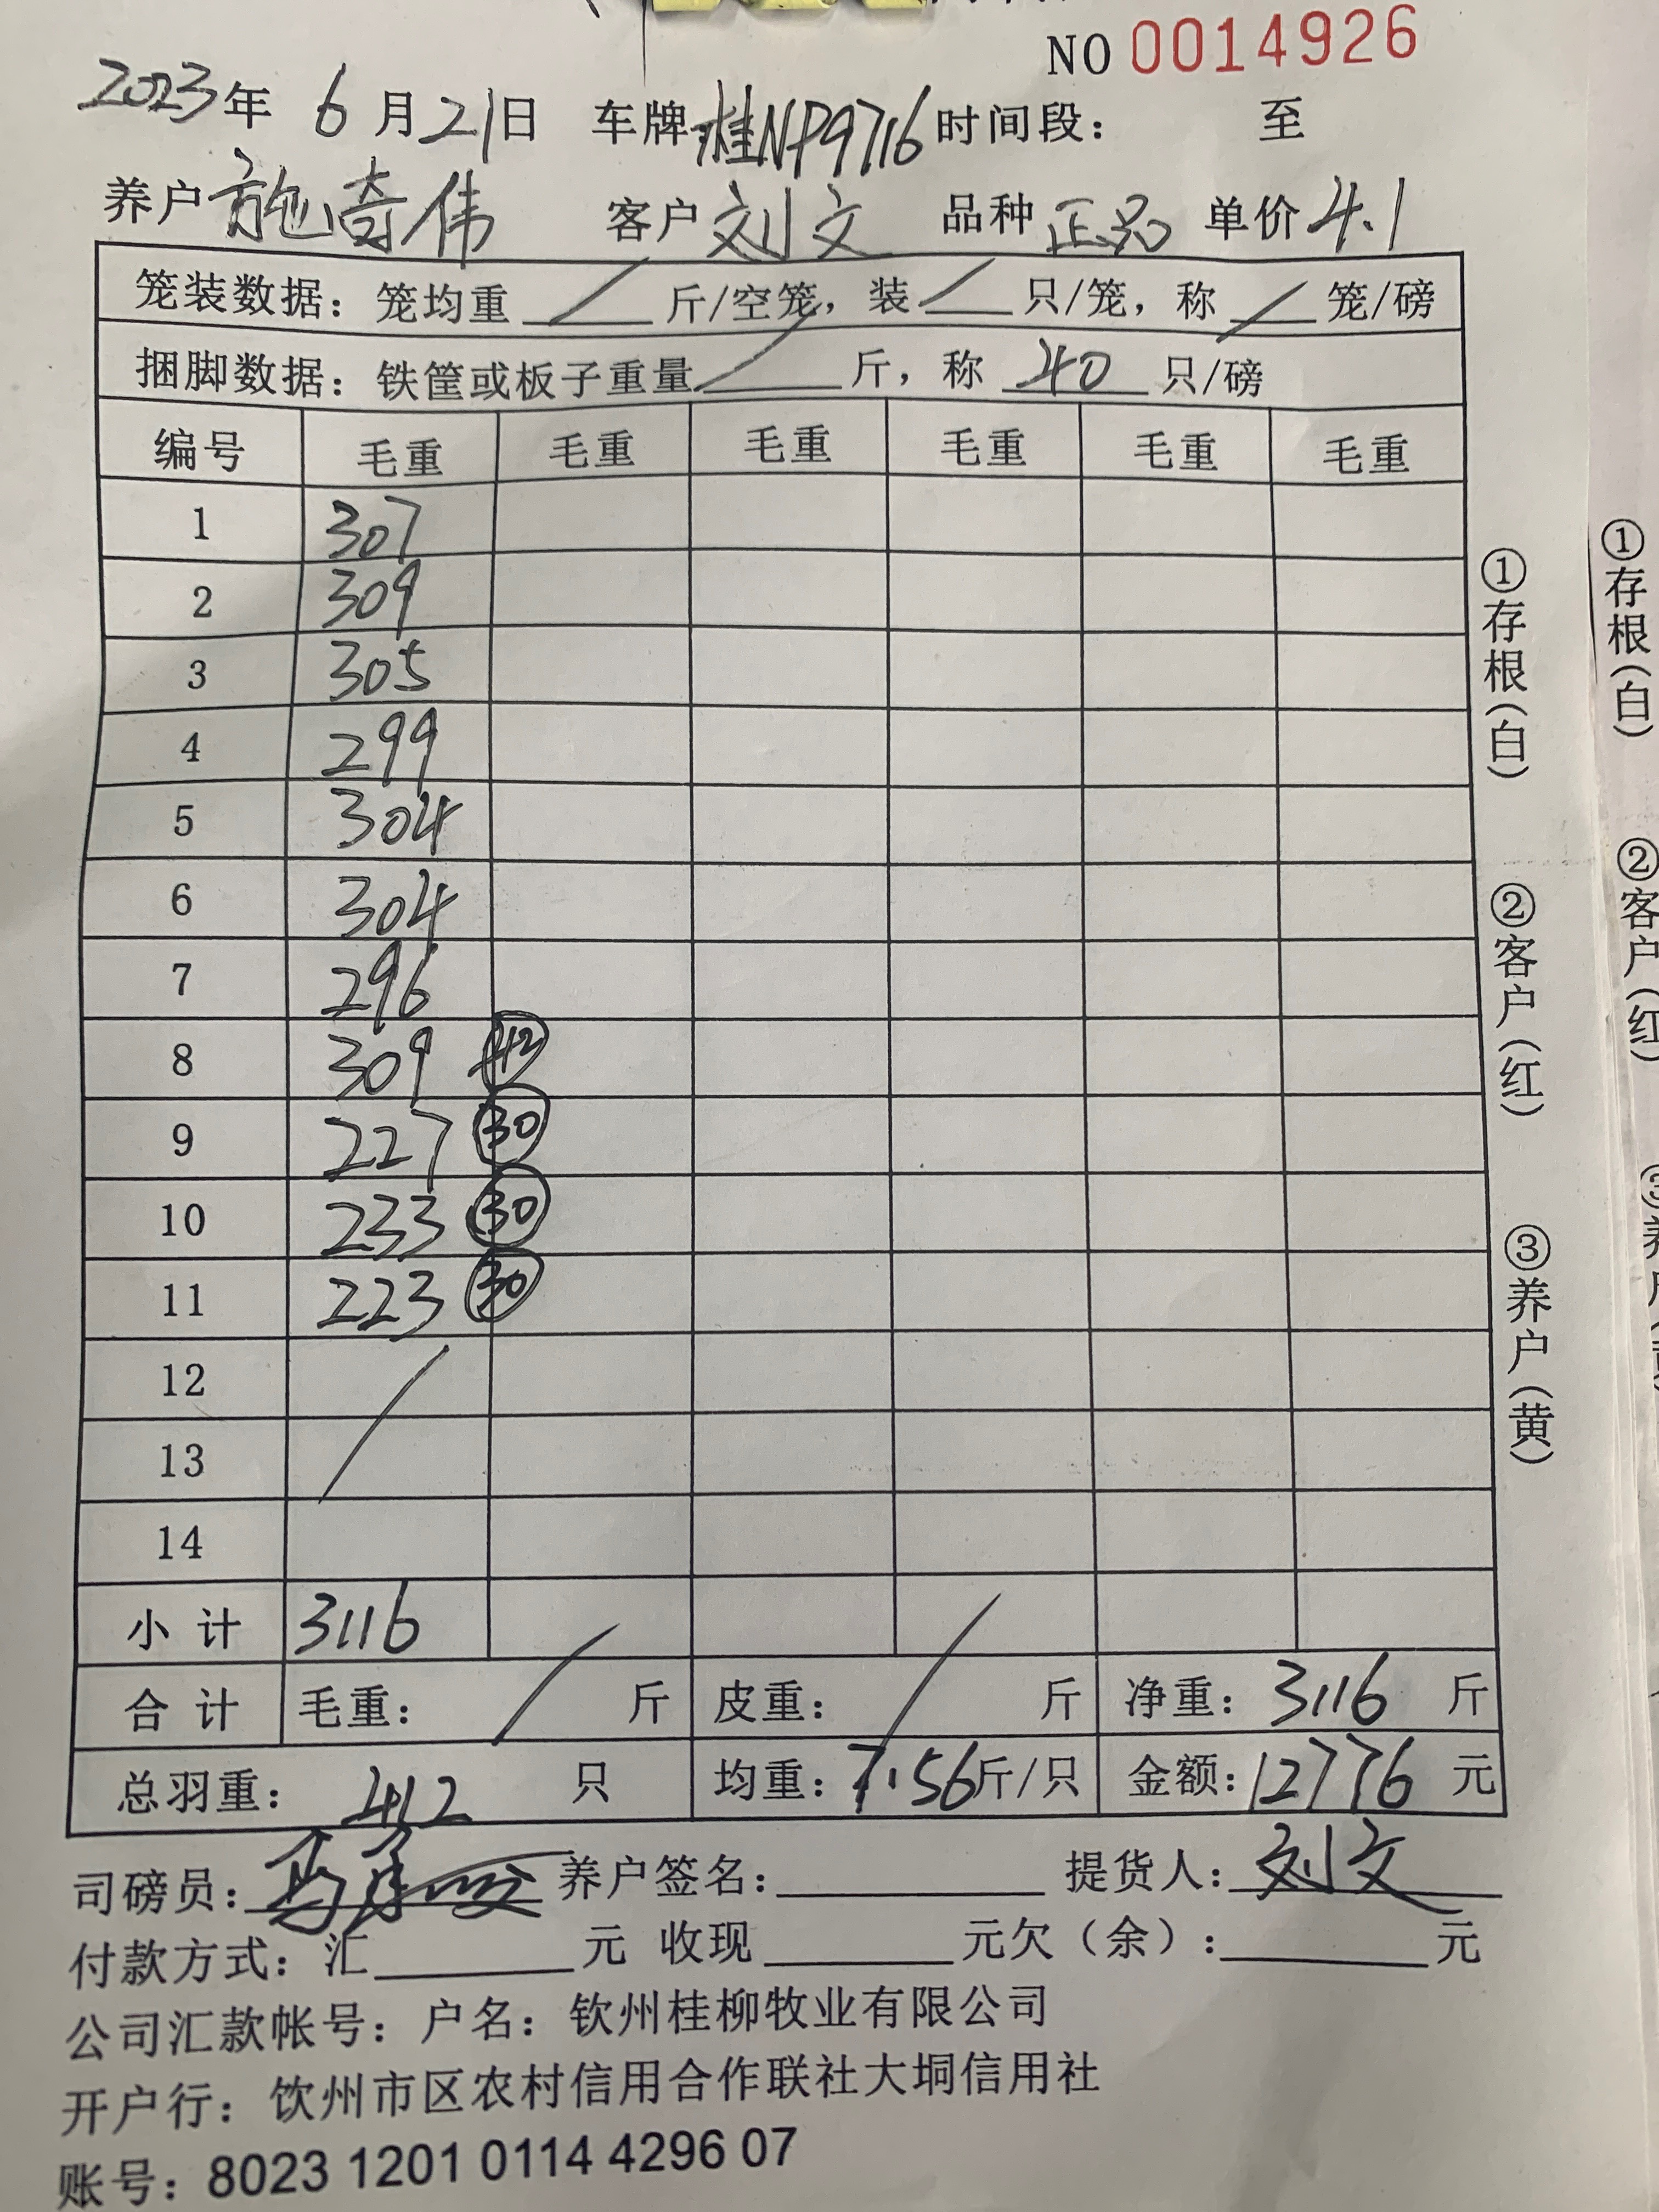 NO 0014926
2023年 6月21日 车牌:桂NP9716 时间段: 至
养户 施奇伟 客户 刘文 品种 正品 单价 4.1
笼装数据: 笼均重 / 斤/空笼, 装 / 只/笼, 称 / 笼/磅
捆脚数据: 铁筐或板子重量 / 斤, 称 40 只/磅
编号 毛重 毛重 毛重 毛重 毛重 毛重
1 307
2 309
3 305
4 299
5 304
6 304
7 296
8 309 42
9 227 30
10 233 30
11 223 30
12
13
14
小计 3116
合计 毛重: / 斤 皮重: / 斤 净重: 3116 斤
总羽重: 412 只 均重: 7.56斤/只 金额: 12776 元
司磅员: 养户签名: 提货人: 刘文
付款方式: 汇 元 收现 元欠(余): 元
公司汇款帐号: 户名: 钦州桂柳牧业有限公司
开户行: 饮州市区农村信用合作联社大垌信用社
账号: 8023 1201 0114 4296 07
①存根(白)
②客户(红)
③养户(黄)
①存根(白)
②客户(红)